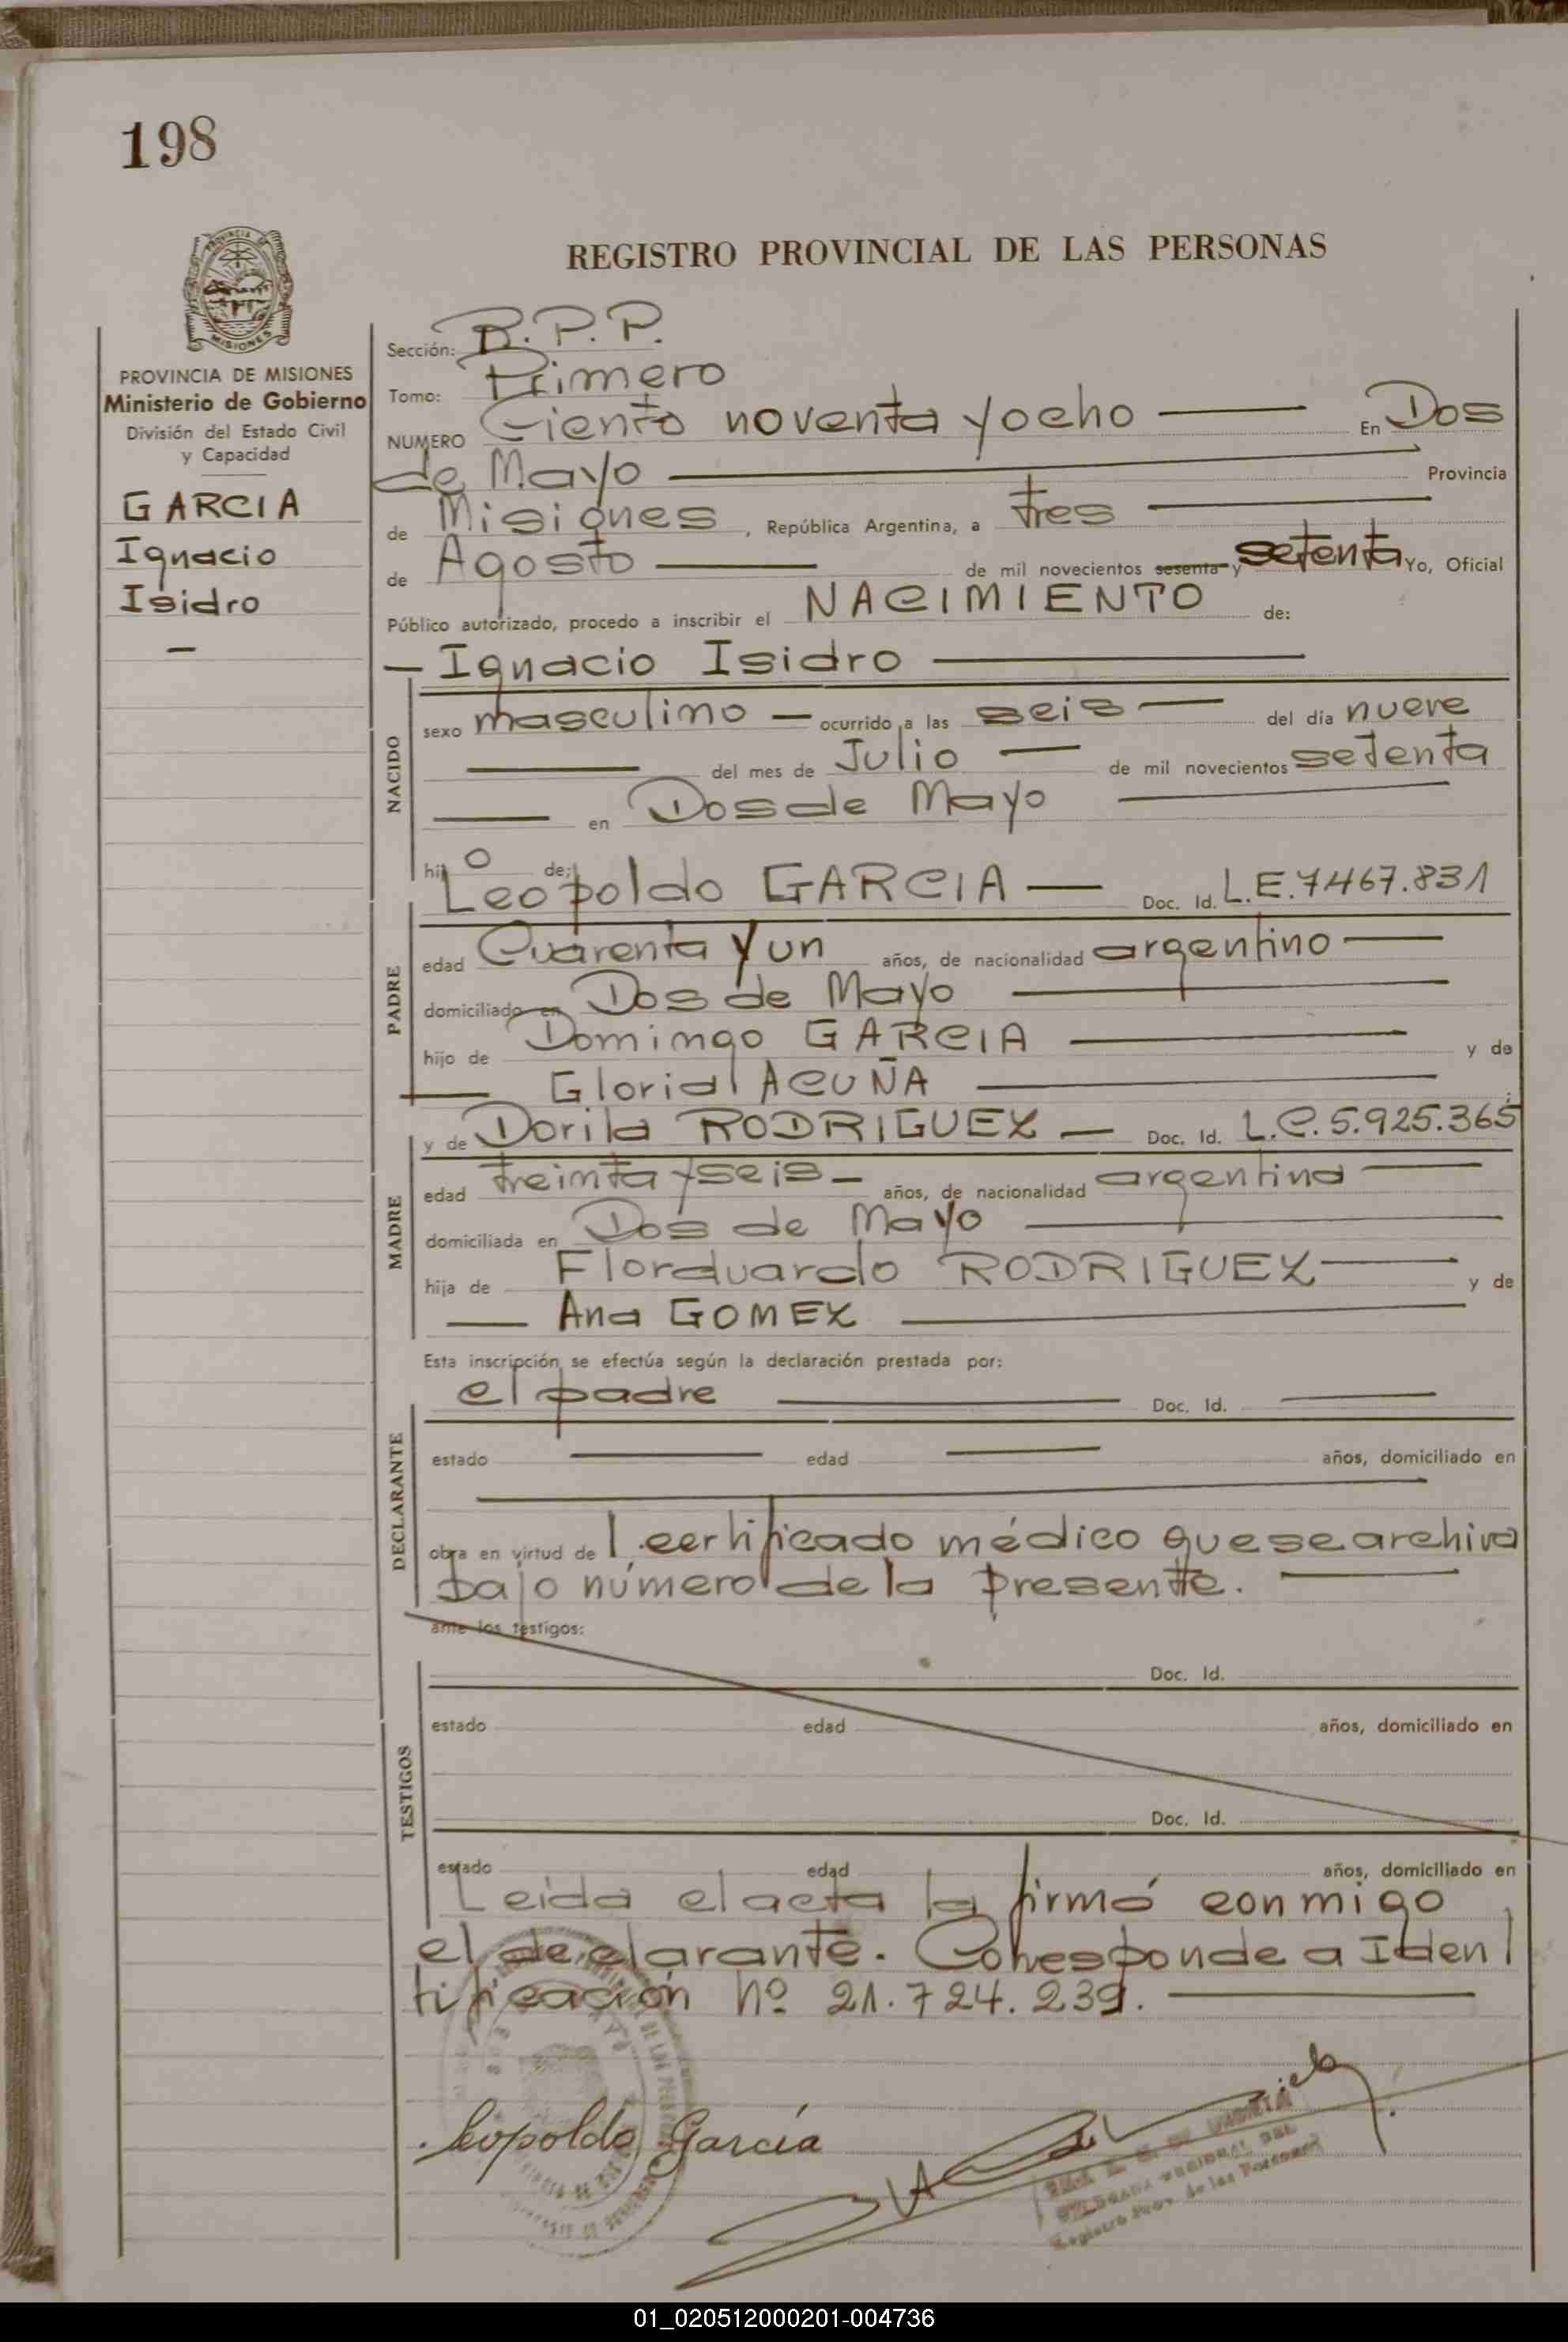 198
REGISTRO PROVINCIAL DE LAS PERSONAS
PROVINCIA DE MISIONES
Ministerio de Gobierno
División del Estado Civil
y Capacidad
GARCIA
Ignacio
Isidro
—
Sección: B.P.P.
Tomo: Primero
NUMERO Ciento noventa y ocho — En Dos
de Mayo — Provincia
de Misiones, República Argentina, a tres —
de Agosto — de mil novecientos sesenta y setenta Yo, Oficial
Público autorizado, procedo a inscribir el NACIMIENTO de:
— Ignacio Isidro —
NACIDO
sexo masculino — ocurrido a las seis — del día nueve
— del mes de Julio — de mil novecientos setenta
— en Dos de Mayo —
hijo de:
Leopoldo GARCIA — Doc. Id. L.E. 7467.831
PADRE
edad Cuarenta y un años, de nacionalidad argentino —
domiciliado en Dos de Mayo —
hijo de Domingo GARCIA — y de
— Gloria ACUÑA —
y de Dorila RODRIGUEZ — Doc. Id. L.C. 5.925.365
MADRE
edad treinta y seis — años, de nacionalidad argentina —
domiciliada en Dos de Mayo —
hija de Florduardo RODRIGUEZ — y de
— Ana GOMEZ —
Esta inscripción se efectúa según la declaración prestada por:
el padre — Doc. Id. —
DECLARANTE
estado — edad — años, domiciliado en
—
obra en virtud de l certificado médico que se archiva
bajo número de la presente. —
ante los testigos:
Doc. Id.
TESTIGOS
estado edad años, domiciliado en
Doc. Id.
estado edad años, domiciliado en
Leida el acta la firmó conmigo
el declarante. Corresponde a Iden
tificación Nº 21.724.239. —
Leopoldo García
Registro Prov. de las Personas
01_020512000201-004736